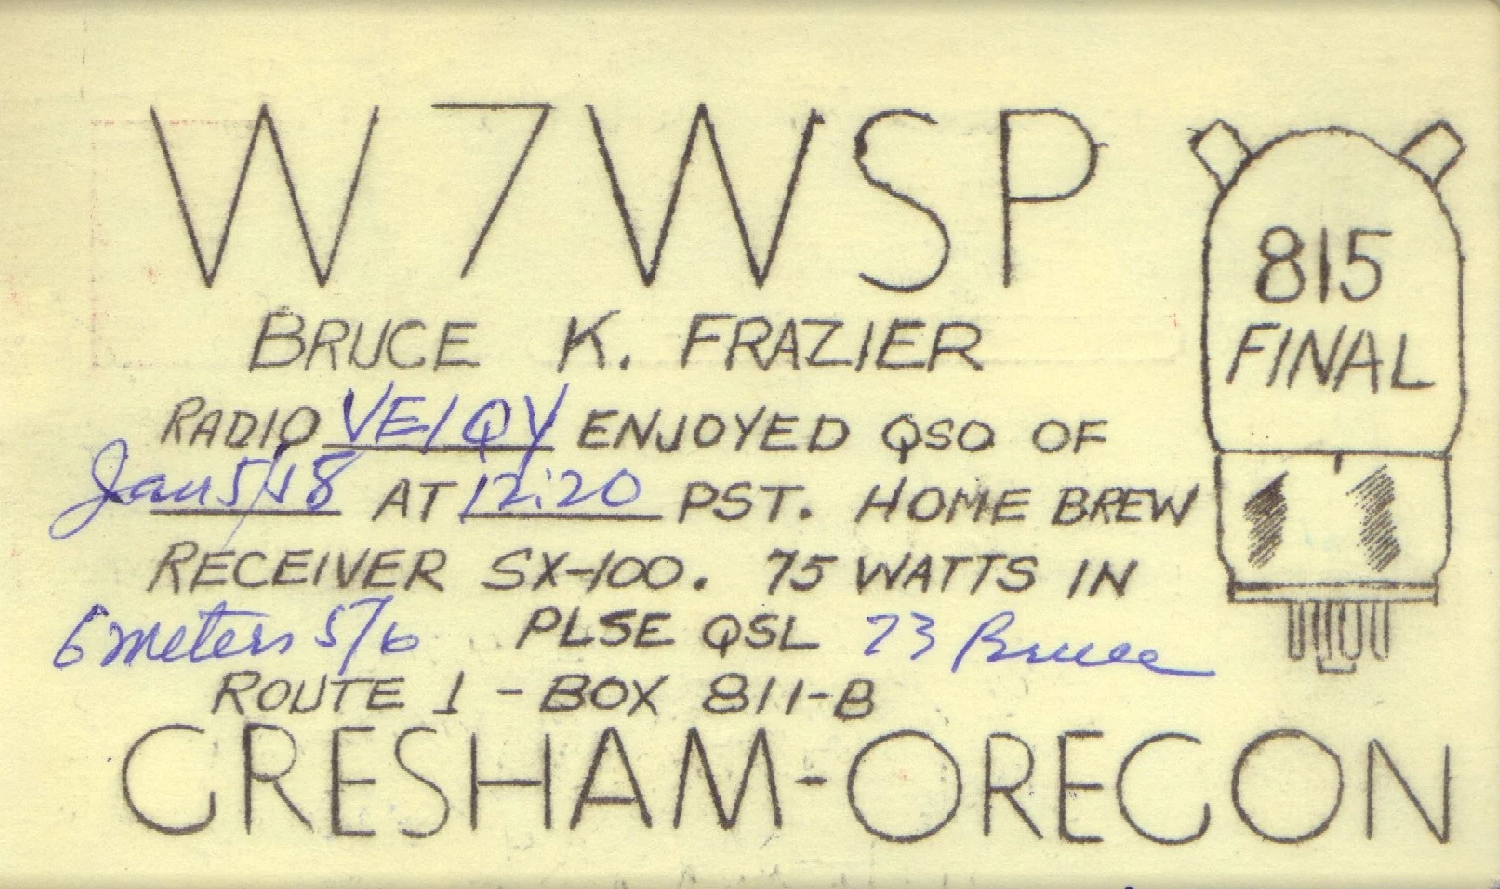 W7WSP
BRUCE K. FRAZIER
RADIO VE1QY ENJOYED QSO OF
Jan 5/58 AT 12:20 PST. HOME BREW
RECEIVER SX-100. 75 WATTS IN
6 meters 5/6 PLSE QSL 73 Bruce
ROUTE 1 - BOX 811-B
GRESHAM-OREGON
815
FINAL